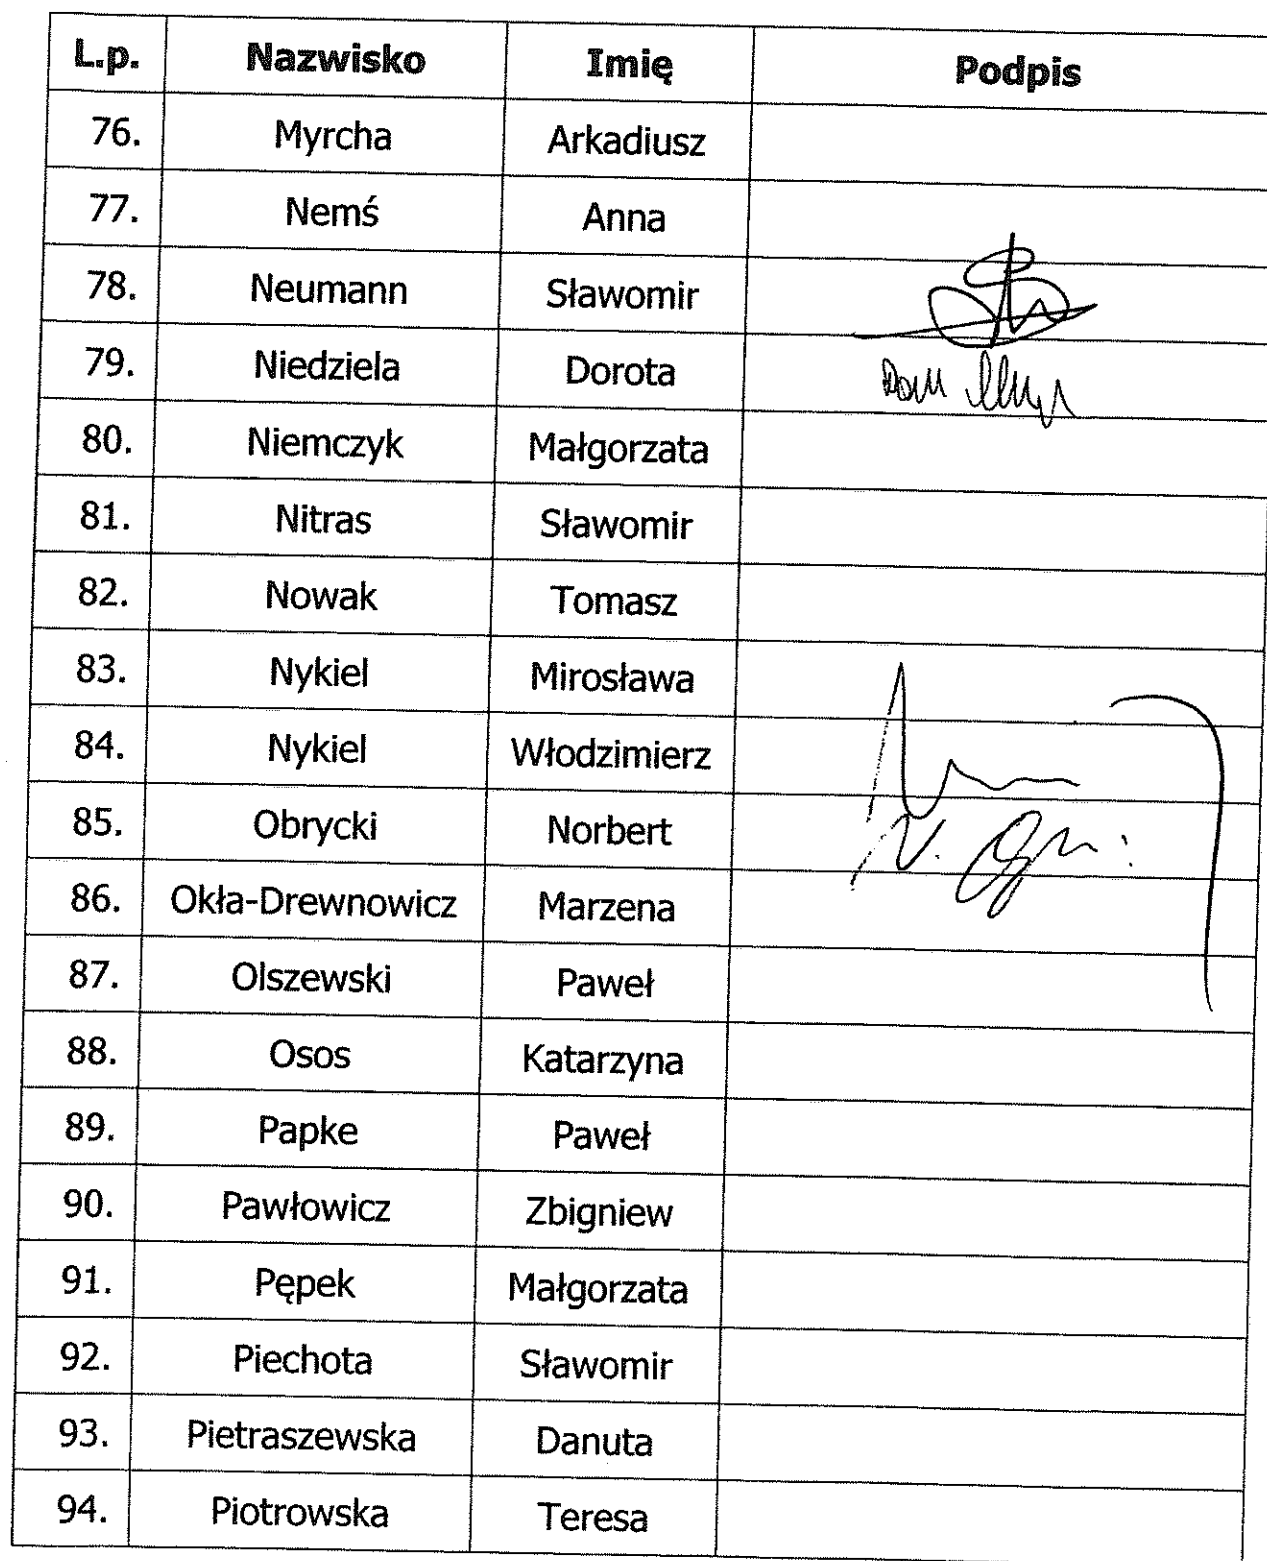 L.p. Nazwisko Imię Podpis
76. Myrcha Arkadiusz
77. Nemś Anna
78. Neumann Sławomir
79. Niedziela Dorota
80. Niemczyk Małgorzata
81. Nitras Sławomir
82. Nowak Tomasz
83. Nykiel Mirosława
84. Nykiel Włodzimierz
85. Obrycki Norbert
86. Okła-Drewnowicz Marzena
87. Olszewski Paweł
88. Osos Katarzyna
89. Papke Paweł
90. Pawłowicz Zbigniew
91. Pępek Małgorzata
92. Piechota Sławomir
93. Pietraszewska Danuta
94. Piotrowska Teresa